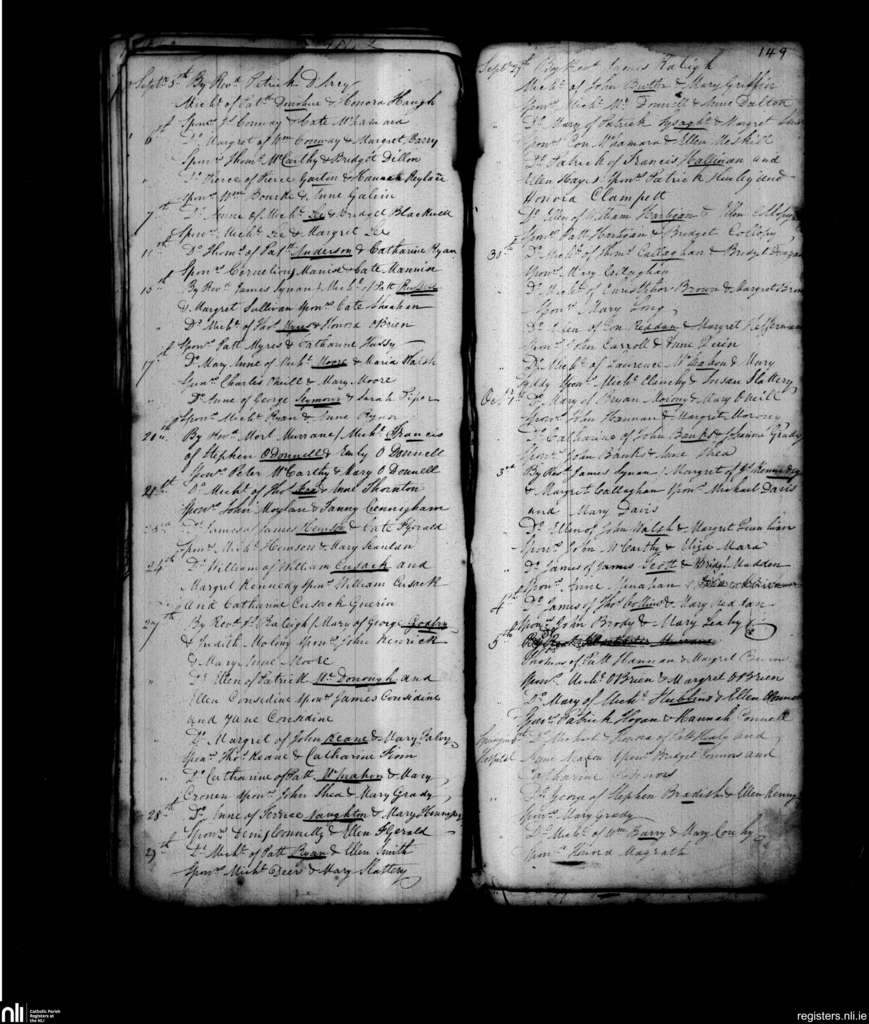 Septr. 5th By Revd. Patrick D Arcy
Michl. of Patk. Donohue & Honora Haugh
Sponr. Conway & Cate McNamara
6th Do. Margret of Wm. Conway & Margret Barry
Sponr. Thoms. McCarthy & Bridget Dillon
" Do. Pierce of Pierce & Hannah
Sponr. Wm. Bourke & Anne Galvin
7th Do. Anne of Michl. Lee & Bridget Blackwell
Sponr. Michl. Lee & Margret Lee
11th Do. Thoms. of Patk. Anderson & Catharine Ryan
Sponr. Cornelius & Cate
15th By Revd. James Synan / Michl. of Patt Russell
& Margret Sullivan Sponr. Cate Sheahan
" Do. Michl. of Thos. & Honora OBrien
Sponr. Patt Myres & Catharine Hussy
17th Do. Mary Anne of Michl. Moore & Maria Walsh
Sponr. Charles ONeill & Mary Moore
" Do. Anne of George Seymour & Sarah Piper
Sponr. Michl. Ryan & Anne
20th By Revd. Mort Murrane / Michl. Francis
of Stephen ODonnell & Emly O Donnell
Sponr. Peter McCarthy & Mary O Donnell
21st Do. Michl. of Thos. & Anne Thornton
Sponr. John Moylan & Fanny Cunningham
Do. James of James Hewson & Cate Fgerald
Sponr. Michl. Hewson & Mary Scanlan
24th Do. William of William Cusack and
Margret Kennedy Sponr. William Cusack
and Catharine Cusack Guerin
27th By Revd. Js. Raleigh / Mary of George
& Judith Molony Sponr. John Kenrick
& Mary Anne Moore
" Do. Ellen of Patrick McDonough and
Ellen Considine Sponr. James Considine
and Jane Considine
" Do. Margret of John Keane & Mary
Sponr. Thos. Keane & Catharine Finn
" Do. Catharine of Patt. McMahon & Mary
Cronen Sponr. John Shea & Mary Grady
28th Do. Anne of Terrece Naughton & Mary
Sponr. Denis Connelly & Ellen Fgerald
29th Do. Michl. of Patt Ryan & Ellen Smith
Sponr. Michl. Deer & Mary Slattery
149
Septr. 29th By Revd. James Raleigh
Michl. of John Butler & Mary Griffin
Sponr. Michl. Mc Donnell & Anne Dalton
" Do. Mary of Patrick & Margret
Sponr. Con McNamara & Ellen
" Do. Patrick of Francis Hallinan and
Ellen Hayes Sponr. Patrick and
Honora Clampett
Do. Ellen of William Hartigan & Ellen
Sponr. Patt Hartigan & Bridget
Do. Michl. of Thoms. Callaghan & Bridget
Sponr. Mary Callaghan
" Do. Michl. of Christphor Brown & Margret
Sponr. Mary Long
" Do. Ellen of Con & Margret Heffernan
Sponr. John Carroll & Anne
" Do. Michl. of Laurence McMahon & Mary
Leddy Sponr. Michl. Clanchy & Susan Slattery
Octr. 1st Do. Mary of Bryan Morony & Mary ONeill
Sponr. John Hannan & Margret Morony
" Do. Catharine of John Banks & Johanna Grady
Sponr. John Banks & Anne Shea
3rd By Revd. James Synan / Margret of Kennedy
& Margret Callaghan Sponr. Michael Davis
and Mary Davis
" Do. Ellen of John Walsh & Margret
Sponr. John McCarthy & Eliza Mara
" Do. James of James Scott & Bridgt. Madden
Sponr. Anne
4th Do. James of Thos. Collins & Mary
Sponr. John Brody & Mary Leahy
5th
Thomas of Patt Hannan & Margret
Sponr. Michl. OBrien & Margret OBrien
" Do. Mary of Michl. & Ellen
Sponr. Patrick Hogan & Hannah Connell
Hospital Do. Michael & of Patt Healy and
Sponr. Bridget Connors and
Catharine Connors
" Do. George of Stephen Bradish & Ellen Kenny
Sponr. Mary Grady
" Do. Michl. of Wm. Barry & Mary
Sponr. Honora Magrath
nli
Catholic Parish
Registers at
the NLI
registers.nli.ie